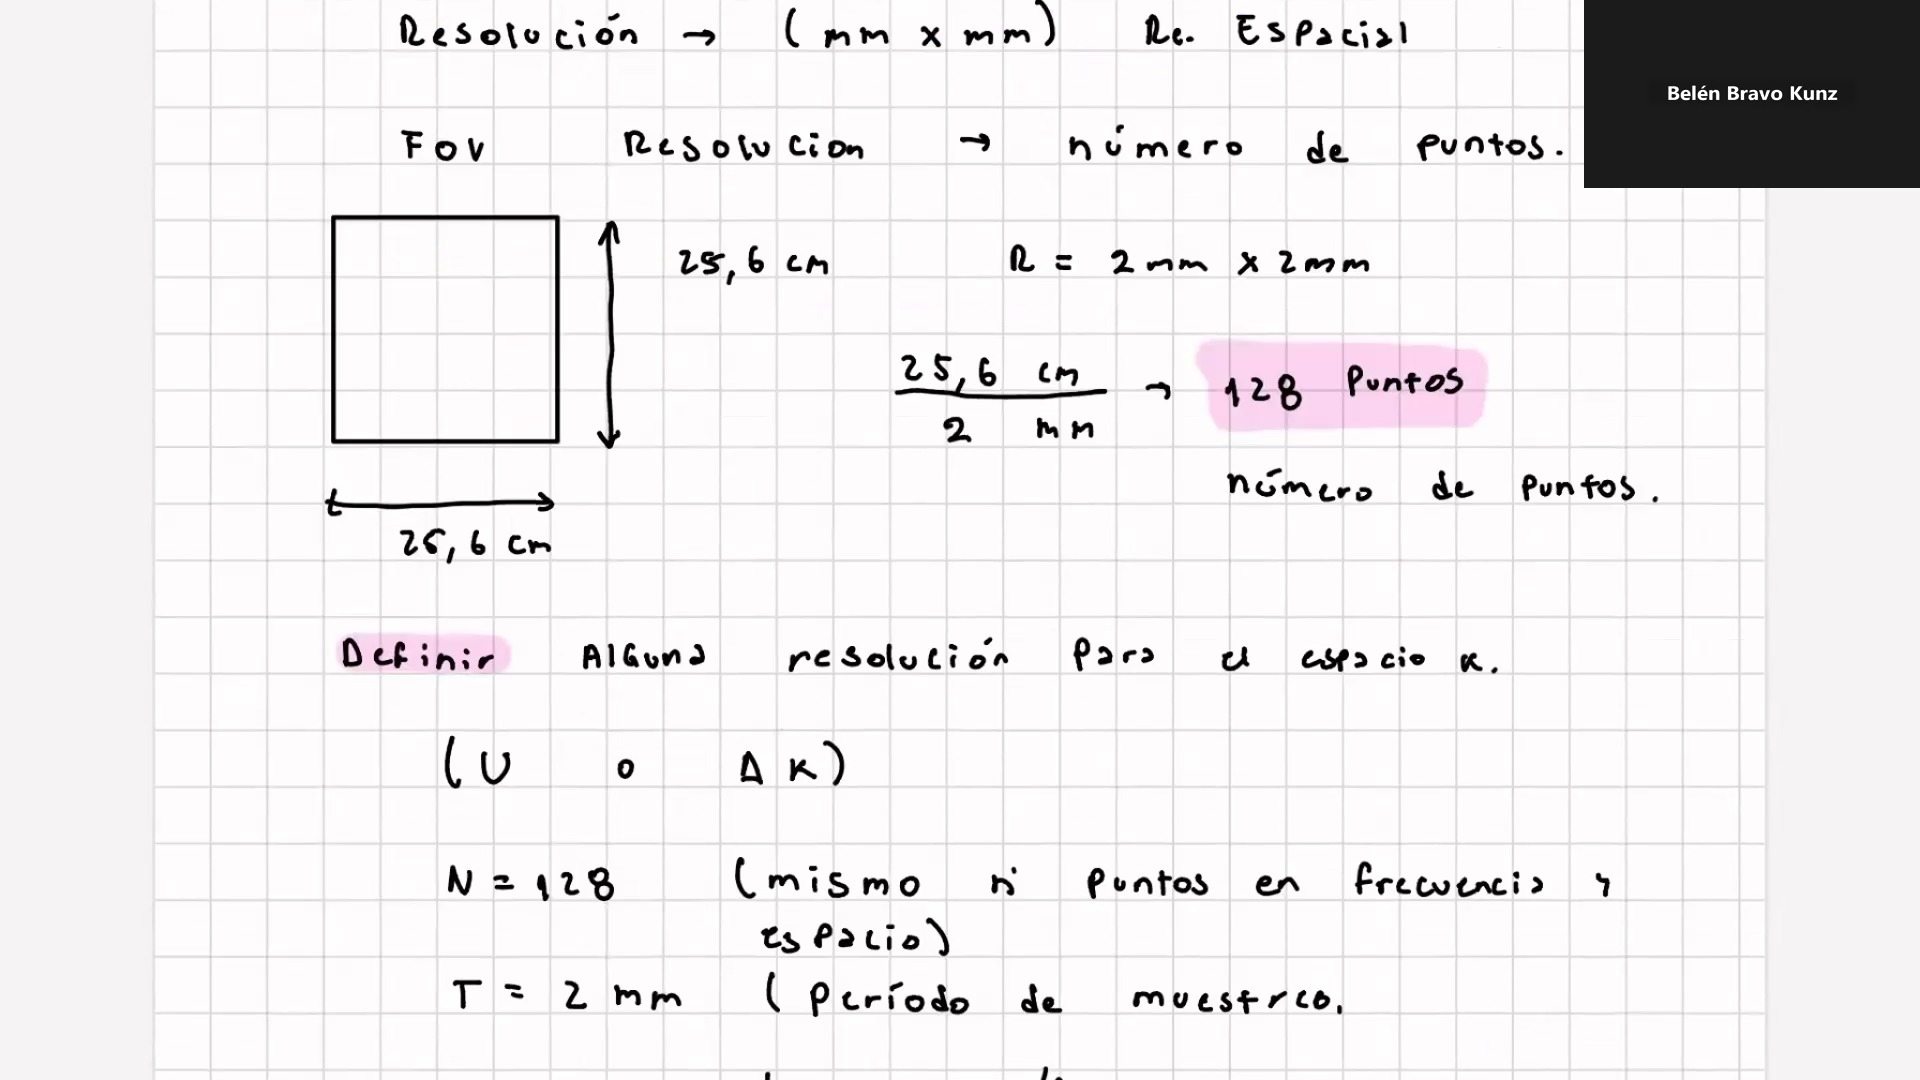 Resolución → (mm x mm) Re. Espacial
Belén Bravo Kunz
FOV Resolucion → número de puntos.
25,6 cm R = 2mm x 2mm
25,6 cm
2 mm
→ 128 Puntos
número de puntos.
25,6 cm
Definir Alguna resolución para el espacio k.
(U o Δk)
N = 128 (mismo n° puntos en frecuencia y
espacio)
T = 2 mm (período de muestreo.